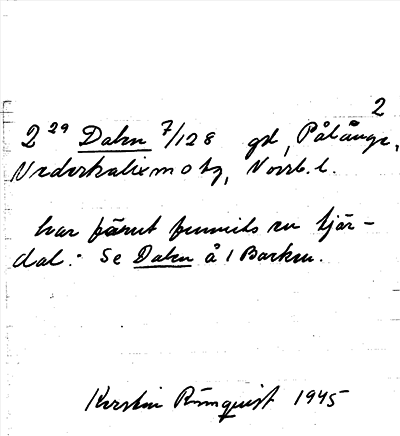 2
2²⁹ Dalen 7/128 gd, Pålänge,
Nederkalix sn o tg, Norrb. l.
har förut funnits en tjär-
dal. Se Dalen å 1 Backen.
Kerstin Rönnquist 1945